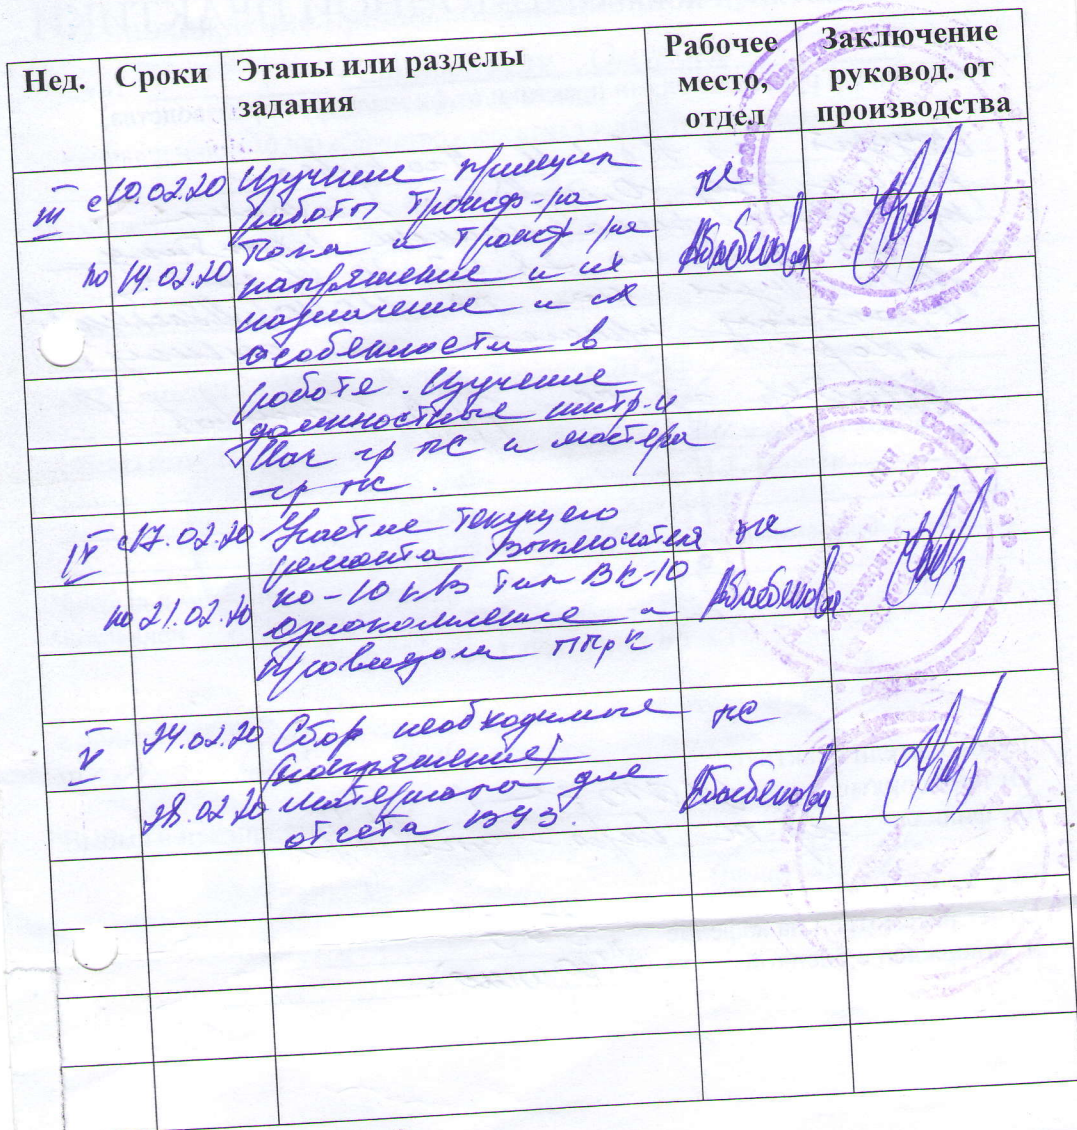 Нед. Сроки Этапы или разделы задания Рабочее место, отдел Заключение руковод. от производства
III с 10.02.20 Изучение принцип пс
работы трансф-ра
по 14.02.20 тока и трансф-ра
напряжение и их
назначение и их
особенности в
работе. Изучение
должностные интр-и
Нач гр пс и мастера
гр пс.
IV с 17.02.20 Участие текущего
ремонта выключателя пс
по 21.02.20 по-10 кВ тип ВК-10
ознакомление и
ППРК
V 24.02.20 Сбор необходимые пс
(напряжение)
28.02.20 материалы для
отчета ВУЗ